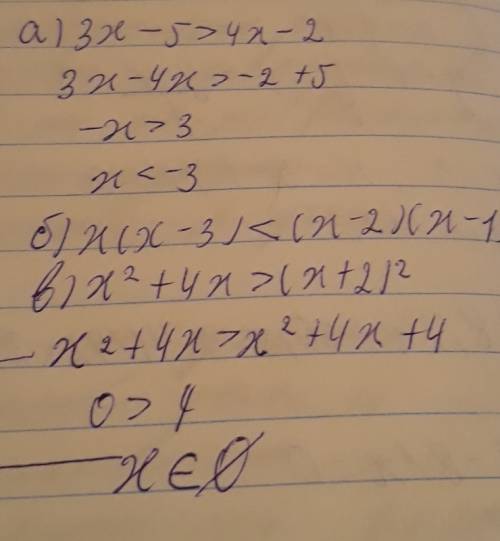 а) 3x - 5 > 4x - 2
3x - 4x > -2 + 5
-x > 3
x < -3
б) x(x - 3) < (x - 2)(x - 1
в) x² + 4x > (x + 2)²
x² + 4x > x² + 4x + 4
0 > 4
x ∈ Ø